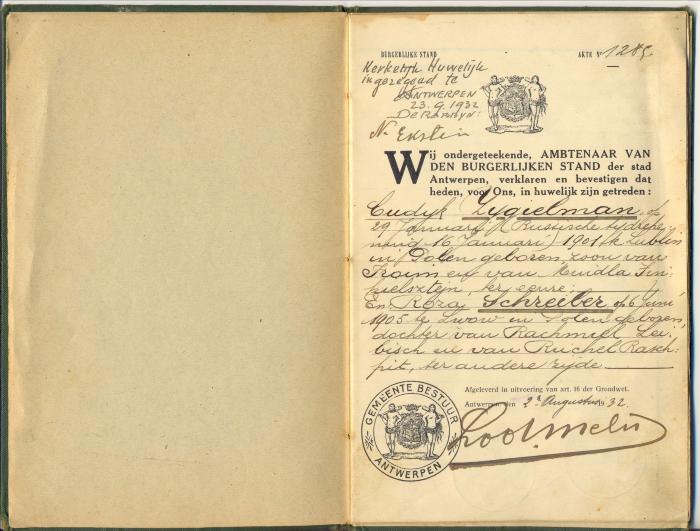 BURGERLIJKE STAND
AKTE Nr 1285
Kerkelijk Huwelijk
ingezegend te
ANTWERPEN
23.9.1932
De Rabbijn:
N. Ekstein
Wij ondergeteekende, AMBTENAAR VAN
DEN BURGERLIJKEN STAND der stad
Antwerpen, verklaren en bevestigen dat
heden, voor Ons, in huwelijk zijn getreden:
Cudyk Zygielman, op
29 Januarij (Russische tijdreke-
ning 16 Januari) 1901 te Lublin
in Polen geboren, zoon van
Froim en van Mindla Fin-
kielsztejn, ter eenre;
En Roza Schreiber op 6 Juni
1905 te Lwow in Polen geboren,
dochter van Rachmiel Lei-
bisch en van Ruchel Rasch-
pit, ter andere zijde
Afgeleverd in uitvoering van art. 16 der Grondwet.
Antwerpen, den 2n Augustus 1932.
GEMEENTE BESTUUR
ANTWERPEN